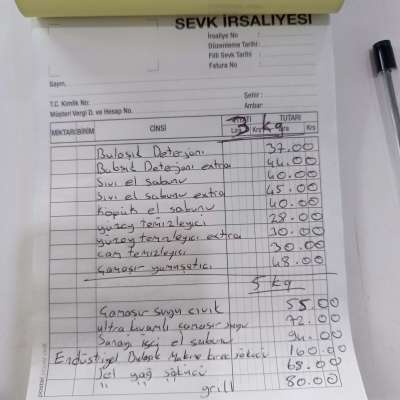 SEVK İRSALİYESİ
İrsaliye No :
Düzenleme Tarihi :
Fiili Sevk Tarihi :
Fatura No :
Sayın,
T.C. Kimlik No:
Şehir :
Müşteri Vergi D. ve Hesap No.
Ambar:
MİKTARI BİRİM CİNSİ TUTARI
3 kg
Lira Krş
Bulaşık Deterjanı 37.00
Bulaşık Deterjanı extra 44.00
Sıvı el sabunu 40.00
Sıvı el sabunu extra 45.00
Köpük el sabunu 40.00
yüzey temizleyici 28.00
yüzey temizleyici extra 30.00
cam temizleyici 30.00
Çamaşır yumuşatıcı 48.00
5 kg
Çamaşır suyu cıvık 55.00
ultra kıvamlı çamaşır suyu 72.00
Sanayi işçi el sabunu 94.00
Endüstriyel Bulaşık Makine kireç sökücü 160.00
Jel yağ sökücü 68.00
" " " grill 80.00